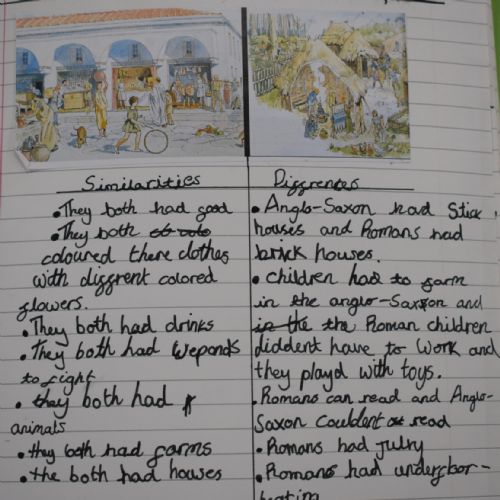 Similarities
• They both had good
• They both
coloured there clothes
with diggrent colored
glowers.
• They both had drinks
• They both had weponds
to gight
• they both had
animals
• they both had garms
• the both had houses
Diggrences
• Anglo-Saxon had Stick
houses and Romans had
brick houses.
• children had to garm
in the anglo-Saxson and
in the the Roman children
diddent have to work and
they playd with toys.
• Romans can read and Anglo-
Saxon Couldent read
• Romans had
• Romans had undergbor-
heating